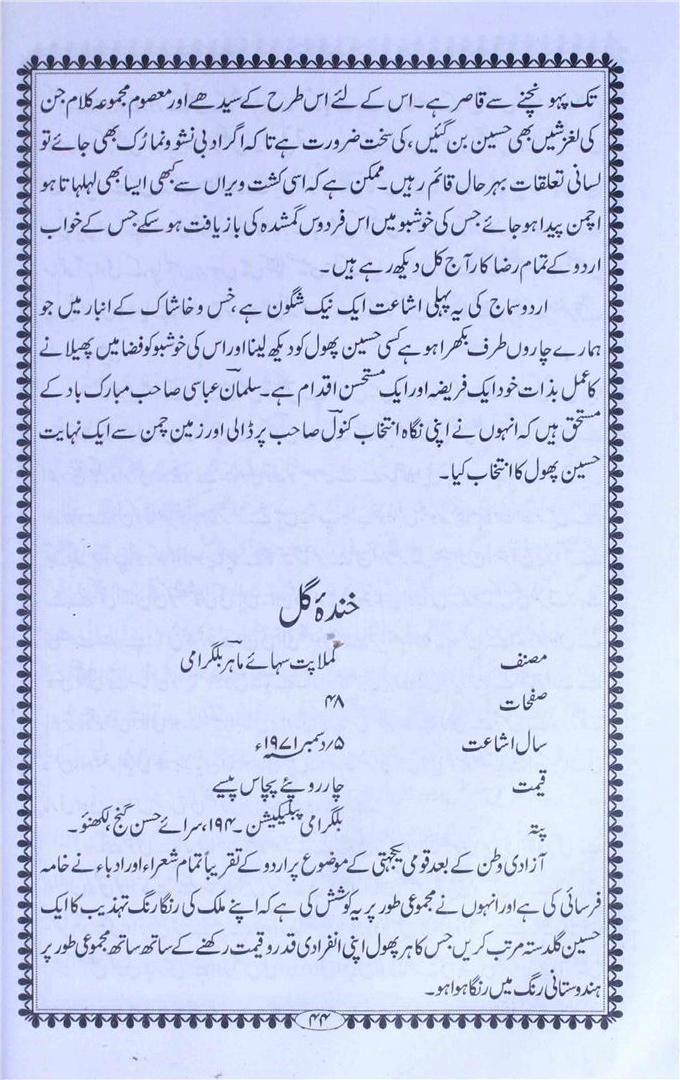 تک پہونچنے سے قاصر ہے۔ اس کے لئے اس طرح کے سیدھے اور معصوم مجموعہ کلام جن
کی لغزشیں بھی حسین بن گئیں، کی سخت ضرورت ہے تاکہ اگر ادبی نشوونما رُک بھی جائے تو
لسانی تعلقات بہرحال قائم رہیں۔ ممکن ہے کہ اسی کشت ویراں سے کبھی ایسا بھی لہلہاتا ہو
اچمن پیدا ہو جائے جس کی خوشبو میں اس فردوس گمشدہ کی بازیافت ہو سکے جس کے خواب
اردو کے تمام رضا کار آج کل دیکھ رہے ہیں۔
اردو سماج کی یہ پہلی اشاعت ایک نیک شگون ہے، خس و خاشاک کے انبار میں جو
ہمارے چاروں طرف بکھرا ہو ہے کسی حسین پھول کو دیکھ لینا اور اس کی خوشبو کو فضا میں پھیلانے
کا عمل بذات خود ایک فریضہ اور ایک مستحسن اقدام ہے۔ سلمانؔ عباسی صاحب مبارک باد کے
مستحق ہیں کہ انہوں نے اپنی نگاہ انتخاب کنولؔ صاحب پر ڈالی اور زمین چمن سے ایک نہایت
حسین پھول کا انتخاب کیا۔
خندۂ گل
مصنف کملاپت سہائے ماہر بلگرامی
صفحات ۴۸
سال اشاعت ۵؍دسمبر ۱۹۷۱ء
قیمت چار روپئے پچاس پیسے
پتہ بلگرامی پبلیکیشن۔ ۱۹۴، سرائے حسن گنج، لکھنؤ۔
آزادی وطن کے بعد قومی یکجہتی کے موضوع پر اردو کے تقریباً تمام شعراء اور ادباء نے خامہ
فرسائی کی ہے اور انہوں نے مجموعی طور پر یہ کوشش کی ہے کہ اپنے ملک کی رنگارنگ تہذیب کا ایک
حسین گلدستہ مرتب کریں جس کا ہر پھول اپنی انفرادی قدروقیمت رکھنے کے ساتھ ساتھ مجموعی طور پر
ہندوستانی رنگ میں رنگا ہوا ہو۔
۴۴